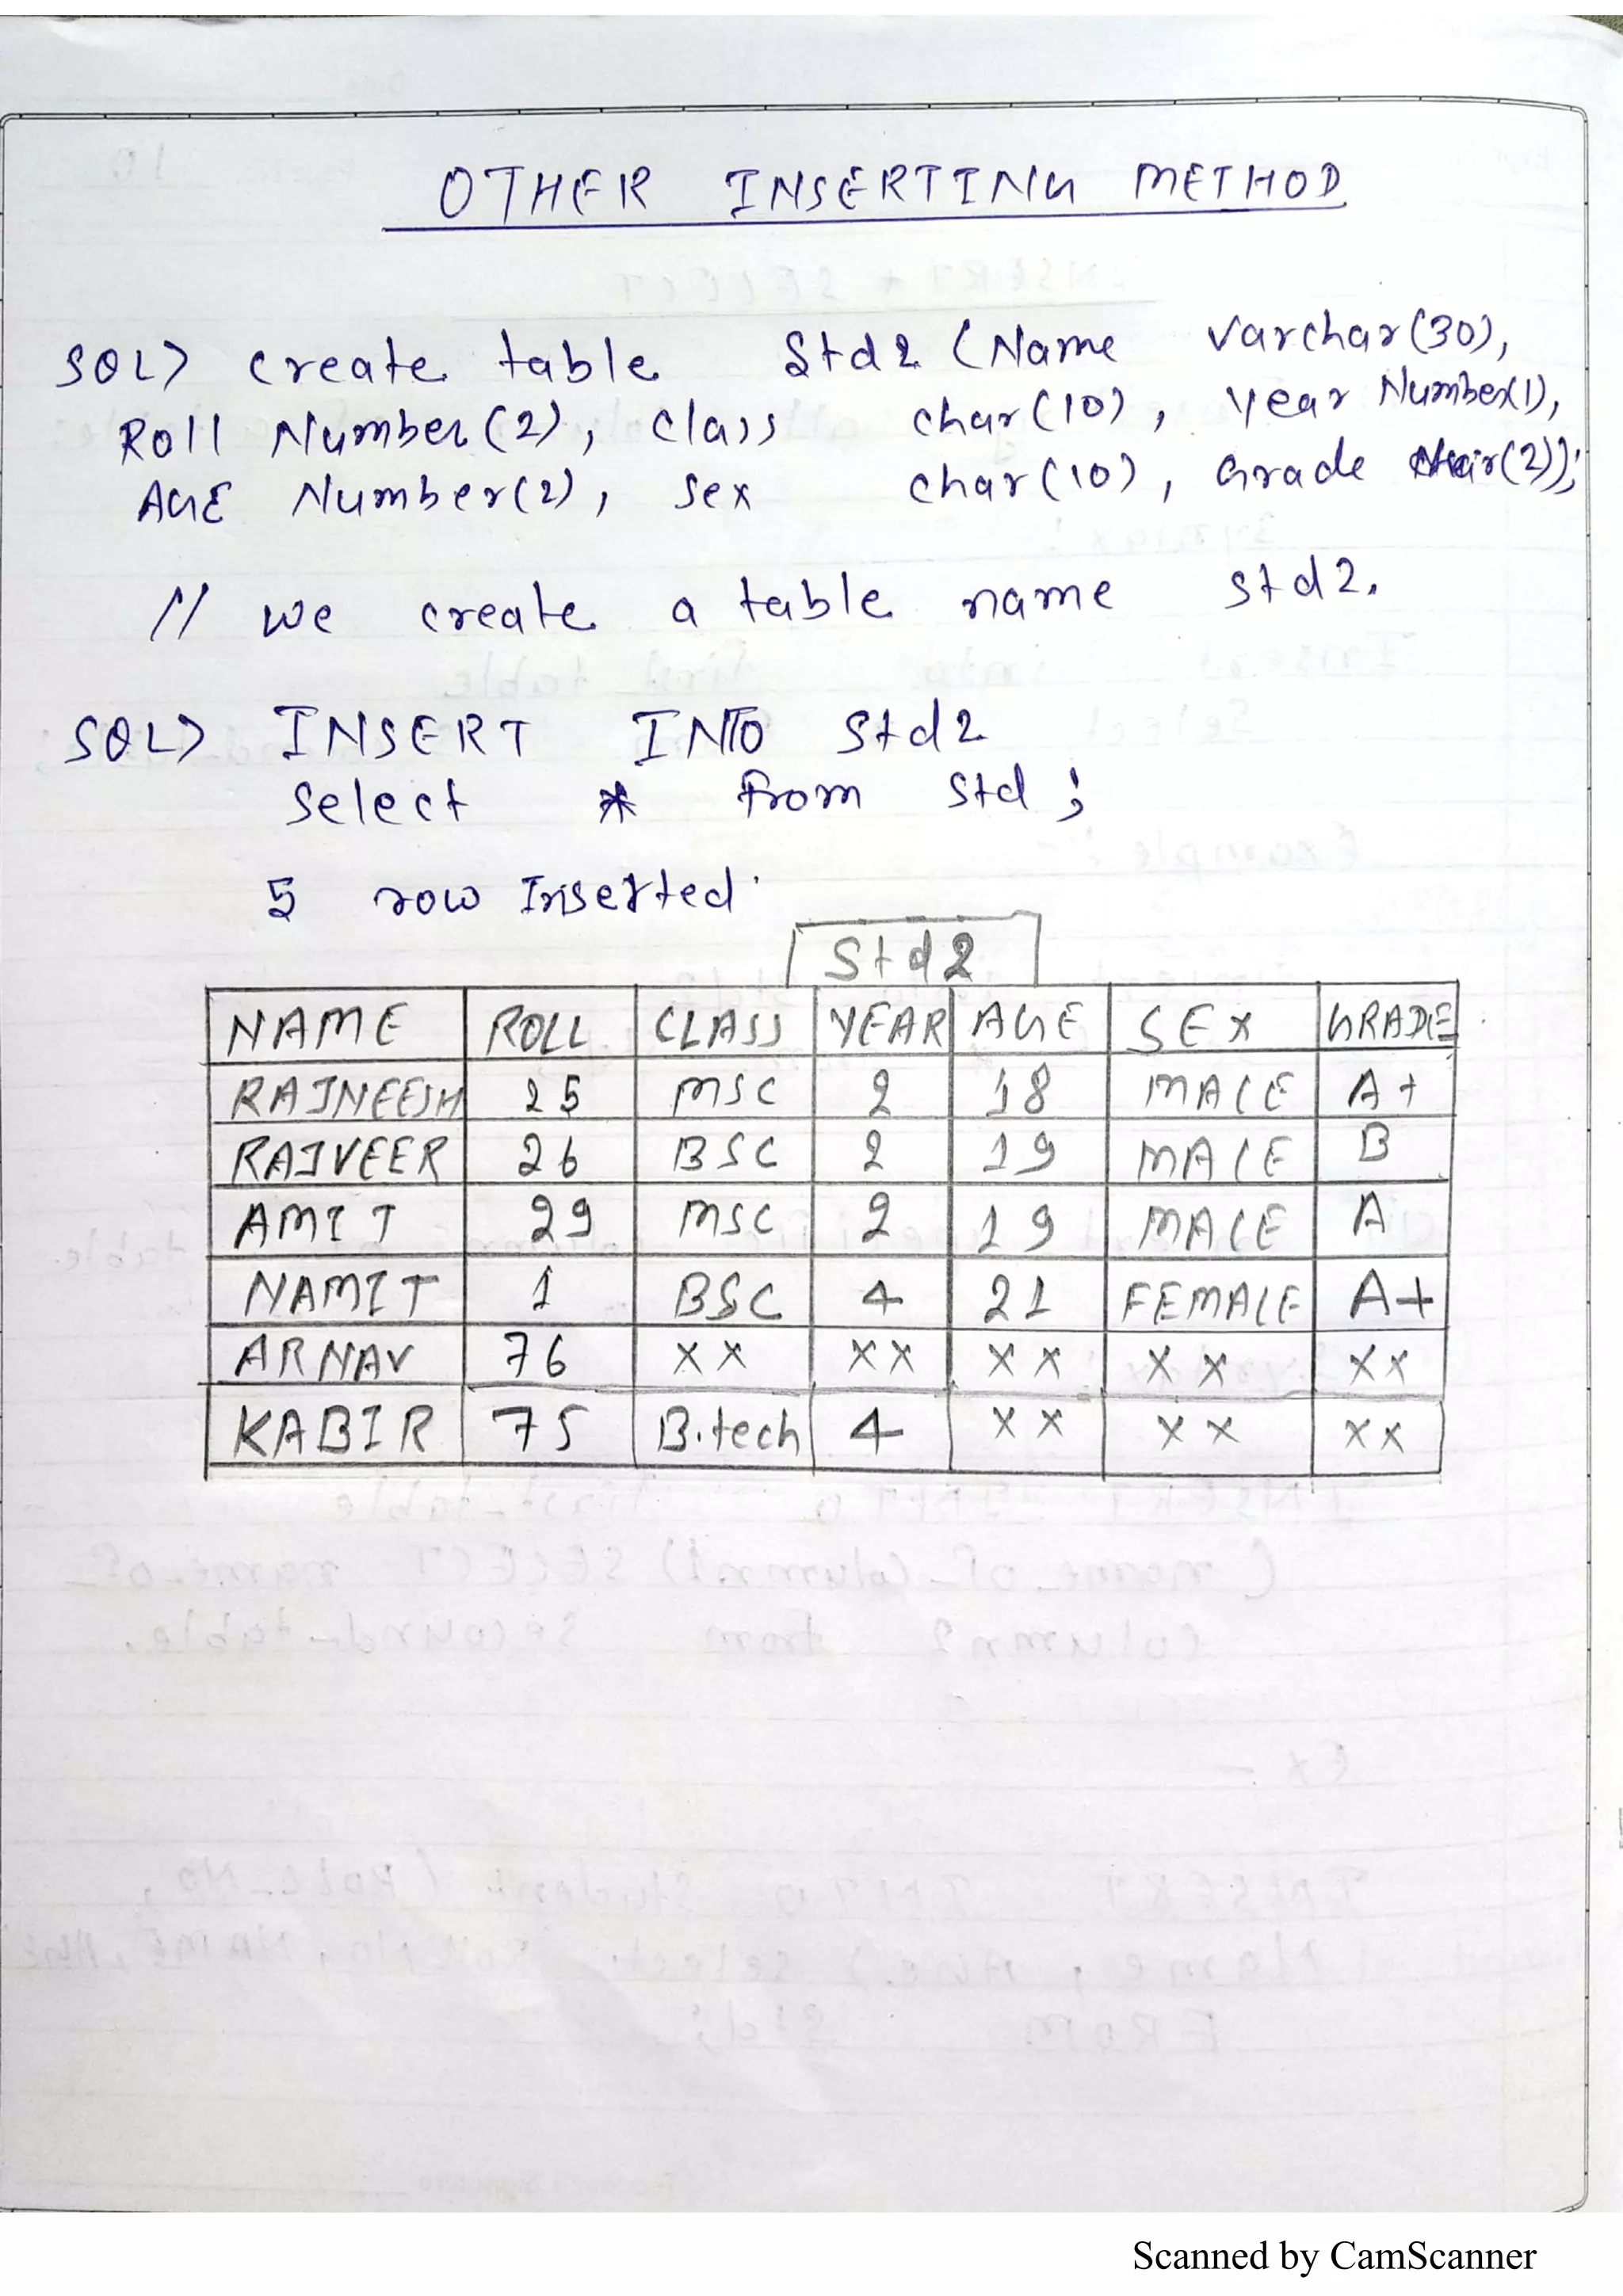 OTHER INSERTING METHOD
SQL> create table Std2 (Name varchar(30),
Roll Number(2), Class char(10), year Number(1),
AGE Number(2), Sex char(10), Grade char(2));
// we create a table name std2.
SQL> INSERT INTO Std2
Select * from Std ;
5 row Inserted.
Std2
NAME ROLL CLASS YEAR AGE SEX GRADE
RAJNEESH 25 MSC 2 18 MALE A+
RAJVEER 26 BSC 2 19 MALE B
AMIT 29 MSC 2 19 MALE A
NAMIT 1 BSC 4 21 FEMALE A+
ARNAV 76 XX XX XX XX XX
KABIR 75 B.tech 4 XX XX XX
Scanned by CamScanner